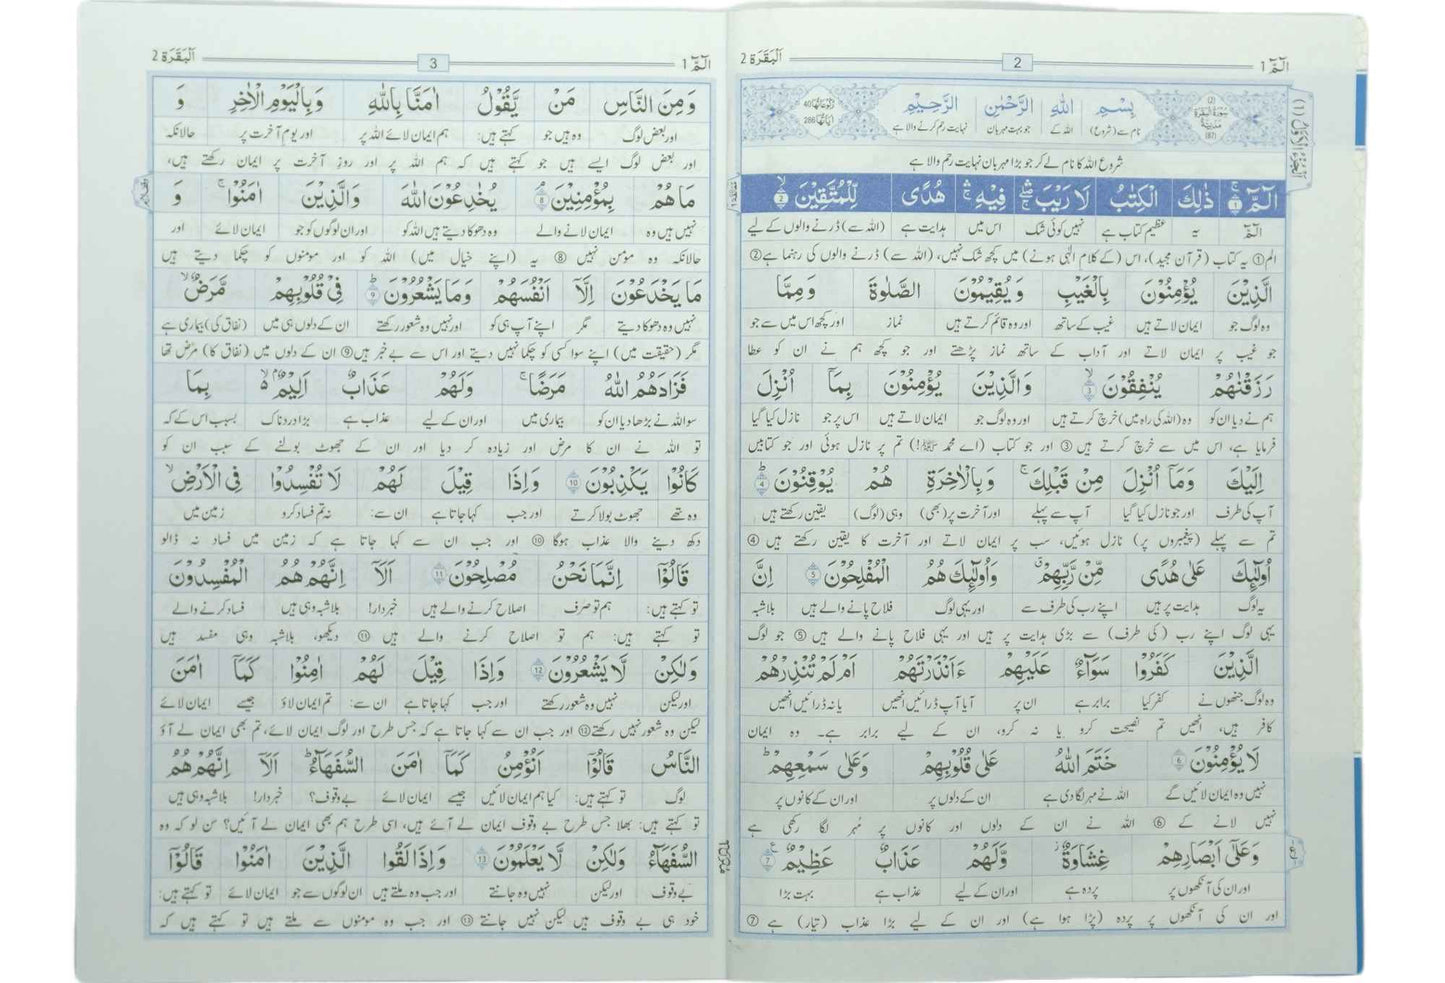 الٓمّٓ 1
2
اَلْبَقَرَة 2
(2) سُوْرَةُ الْبَقَرَةِ مَدَنِيَّةٌ (87)
بِسْمِ اللّٰهِ الرَّحْمٰنِ الرَّحِيْمِ
رُكُوْعَاتُهَا 40 اٰيَاتُهَا 286
نام سے (شروع) اللہ کے جو بہت مہربان نہایت رحم کرنے والا ہے
شروع اللہ کا نام لے کر جو بڑا مہربان نہایت رحم والا ہے
الٓمّٓ ۚ 1 ذٰلِكَ الْكِتٰبُ لَا رَيْبَ فِيْهِ هُدًى لِّلْمُتَّقِيْنَ 2
الٓمّٓ یہ عظیم کتاب ہے نہیں کوئی شک اس میں ہدایت ہے (اللہ سے) ڈرنے والوں کے لیے
الم① یہ کتاب (قرآن مجید)، اس (کے کلام الٰہی ہونے) میں کچھ شک نہیں، (اللہ سے) ڈرنے والوں کی رہنما ہے②
الَّذِيْنَ يُؤْمِنُوْنَ بِالْغَيْبِ وَيُقِيْمُوْنَ الصَّلٰوةَ وَمِمَّا
وہ لوگ جو ایمان لاتے ہیں غیب کے ساتھ اور وہ قائم کرتے ہیں نماز اور کچھ اس میں سے جو
جو غیب پر ایمان لاتے اور آداب کے ساتھ نماز پڑھتے اور جو کچھ ہم نے ان کو عطا
رَزَقْنٰهُمْ يُنْفِقُوْنَ 3 وَالَّذِيْنَ يُؤْمِنُوْنَ بِمَآ اُنْزِلَ
ہم نے دیا ان کو وہ (اللہ کی راہ میں) خرچ کرتے ہیں اور وہ لوگ جو ایمان لاتے ہیں اس پر جو نازل کیا گیا
فرمایا ہے، اس میں سے خرچ کرتے ہیں③ اور جو کتاب (اے محمد ﷺ!) تم پر نازل ہوئی اور جو کتابیں
اِلَيْكَ وَمَآ اُنْزِلَ مِنْ قَبْلِكَ ۚ وَبِالْاٰخِرَةِ هُمْ يُوْقِنُوْنَ 4
آپ کی طرف اور جو نازل کیا گیا آپ سے پہلے اور آخرت پر (بھی) وہی (لوگ) یقین رکھتے ہیں
تم سے پہلے (پیغمبروں پر) نازل ہوئیں، سب پر ایمان لاتے اور آخرت کا یقین رکھتے ہیں④
اُولٰٓئِكَ عَلٰى هُدًى مِّنْ رَّبِّهِمْ ۙ وَاُولٰٓئِكَ هُمُ الْمُفْلِحُوْنَ 5 اِنَّ
یہ لوگ ہدایت پر ہیں اپنے رب کی طرف سے اور یہی لوگ فلاح پانے والے ہیں بلاشبہ
یہی لوگ اپنے رب (کی طرف) سے بڑی ہدایت پر ہیں اور یہی فلاح پانے والے ہیں⑤ جو لوگ
الَّذِيْنَ كَفَرُوْا سَوَآءٌ عَلَيْهِمْ ءَاَنْذَرْتَهُمْ اَمْ لَمْ تُنْذِرْهُمْ
وہ لوگ جنھوں نے کفر کیا برابر ہے ان پر آیا آپ ڈرائیں انھیں یا نہ ڈرائیں انھیں
کافر ہیں، انھیں تم نصیحت کرو یا نہ کرو، ان کے لیے برابر ہے۔ وہ ایمان
لَا يُؤْمِنُوْنَ 6 خَتَمَ اللّٰهُ عَلٰى قُلُوْبِهِمْ وَعَلٰى سَمْعِهِمْ ؕ
نہیں وہ ایمان لائیں گے اللہ نے مہر لگا دی ہے ان کے دلوں پر اور ان کے کانوں پر
نہیں لانے کے⑥ اللہ نے ان کے دلوں اور کانوں پر مُہر لگا رکھی ہے
وَعَلٰٓى اَبْصَارِهِمْ غِشَاوَةٌ ۫ وَّلَهُمْ عَذَابٌ عَظِيْمٌ 7
اور ان کی آنکھوں پر پردہ ہے اور ان کے لیے عذاب ہے بہت بڑا
اور ان کی آنکھوں پر پردہ (پڑا ہوا ہے) اور ان کے لیے بڑا عذاب (تیار) ہے⑦
الٓمّٓ 1
3
اَلْبَقَرَة 2
وَمِنَ النَّاسِ مَنْ يَّقُوْلُ اٰمَنَّا بِاللّٰهِ وَبِالْيَوْمِ الْاٰخِرِ وَ
اور بعض لوگ وہ ہیں جو کہتے ہیں: ہم ایمان لائے اللہ پر اور یوم آخرت پر حالانکہ
اور بعض لوگ ایسے ہیں جو کہتے ہیں کہ ہم اللہ پر اور روزِ آخرت پر ایمان رکھتے ہیں،
مَا هُمْ بِمُؤْمِنِيْنَ 8 يُخٰدِعُوْنَ اللّٰهَ وَالَّذِيْنَ اٰمَنُوْا ۚ وَ
نہیں ہیں وہ ایمان لانے والے وہ دھوکا دیتے ہیں اللہ کو اور ان لوگوں کو جو ایمان لائے اور
حالانکہ وہ مؤمن نہیں⑧ یہ (اپنے خیال میں) اللہ کو اور مومنوں کو چکما دیتے ہیں
مَا يَخْدَعُوْنَ اِلَّآ اَنْفُسَهُمْ وَمَا يَشْعُرُوْنَ 9 فِيْ قُلُوْبِهِمْ مَّرَضٌ ۙ
نہیں وہ دھوکا دیتے مگر اپنے آپ ہی کو اور نہیں وہ شعور رکھتے ان کے دلوں ہی میں (نفاق کی) بیماری ہے
مگر (حقیقت میں) اپنے سوا کسی کو چکما نہیں دیتے اور اس سے بے خبر ہیں⑨ ان کے دلوں میں (نفاق کا) مرض تھا
فَزَادَهُمُ اللّٰهُ مَرَضًا ۚ وَلَهُمْ عَذَابٌ اَلِيْمٌ ۢ بِمَا
سو اللہ نے بڑھا دیا ان کو بیماری میں اور ان کے لیے عذاب ہے بڑا دردناک بسبب اس کے کہ
تو اللہ نے ان کا مرض اور زیادہ کر دیا اور ان کے جھوٹ بولنے کے سبب ان کو
كَانُوْا يَكْذِبُوْنَ 10 وَاِذَا قِيْلَ لَهُمْ لَا تُفْسِدُوْا فِي الْاَرْضِ ۙ
وہ تھے جھوٹ بولا کرتے اور جب کہا جاتا ہے ان سے: نہ تم فساد کرو زمین میں
دکھ دینے والا عذاب ہوگا⑩ اور جب ان سے کہا جاتا ہے کہ زمین میں فساد نہ ڈالو
قَالُوْٓا اِنَّمَا نَحْنُ مُصْلِحُوْنَ 11 اَلَآ اِنَّهُمْ هُمُ الْمُفْسِدُوْنَ
تو کہتے ہیں: ہم تو صرف اصلاح کرنے والے ہیں خبردار! بلاشبہ وہی ہیں فساد کرنے والے
تو کہتے ہیں: ہم تو اصلاح کرنے والے ہیں⑪ دیکھو، بلاشبہ وہی مفسد ہیں
وَلٰكِنْ لَّا يَشْعُرُوْنَ 12 وَاِذَا قِيْلَ لَهُمْ اٰمِنُوْا كَمَآ اٰمَنَ
اور لیکن نہیں وہ شعور رکھتے اور جب کہا جاتا ہے ان سے: تم ایمان لاؤ جیسے ایمان لائے
لیکن وہ شعور نہیں رکھتے⑫ اور جب ان سے کہا جاتا ہے کہ جس طرح اور لوگ ایمان لائے، تم بھی ایمان لے آؤ
النَّاسُ قَالُوْٓا اَنُؤْمِنُ كَمَآ اٰمَنَ السُّفَهَآءُ ؕ اَلَآ اِنَّهُمْ هُمُ
لوگ تو کہتے ہیں: کیا ہم ایمان لائیں جیسے ایمان لائے بے وقوف؟ خبردار! بلاشبہ وہی ہیں
تو کہتے ہیں: بھلا جس طرح بے وقوف ایمان لے آئے ہیں، اسی طرح ہم بھی ایمان لے آئیں؟ سن لو کہ وہ
السُّفَهَآءُ وَلٰكِنْ لَّا يَعْلَمُوْنَ 13 وَاِذَا لَقُوا الَّذِيْنَ اٰمَنُوْا قَالُوْٓا
بے وقوف اور لیکن نہیں وہ جانتے اور جب وہ ملتے ہیں ان لوگوں سے جو ایمان لائے تو کہتے ہیں:
خود ہی بے وقوف ہیں لیکن نہیں جانتے⑬ اور جب وہ مؤمنوں سے ملتے ہیں تو کہتے ہیں کہ